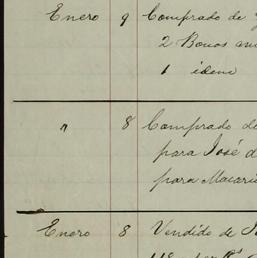 Enero 9 Comprado de
2 Bonos
1 idem
" 8 Comprado de
para José d
para Macari
Enero 8 Vendido de